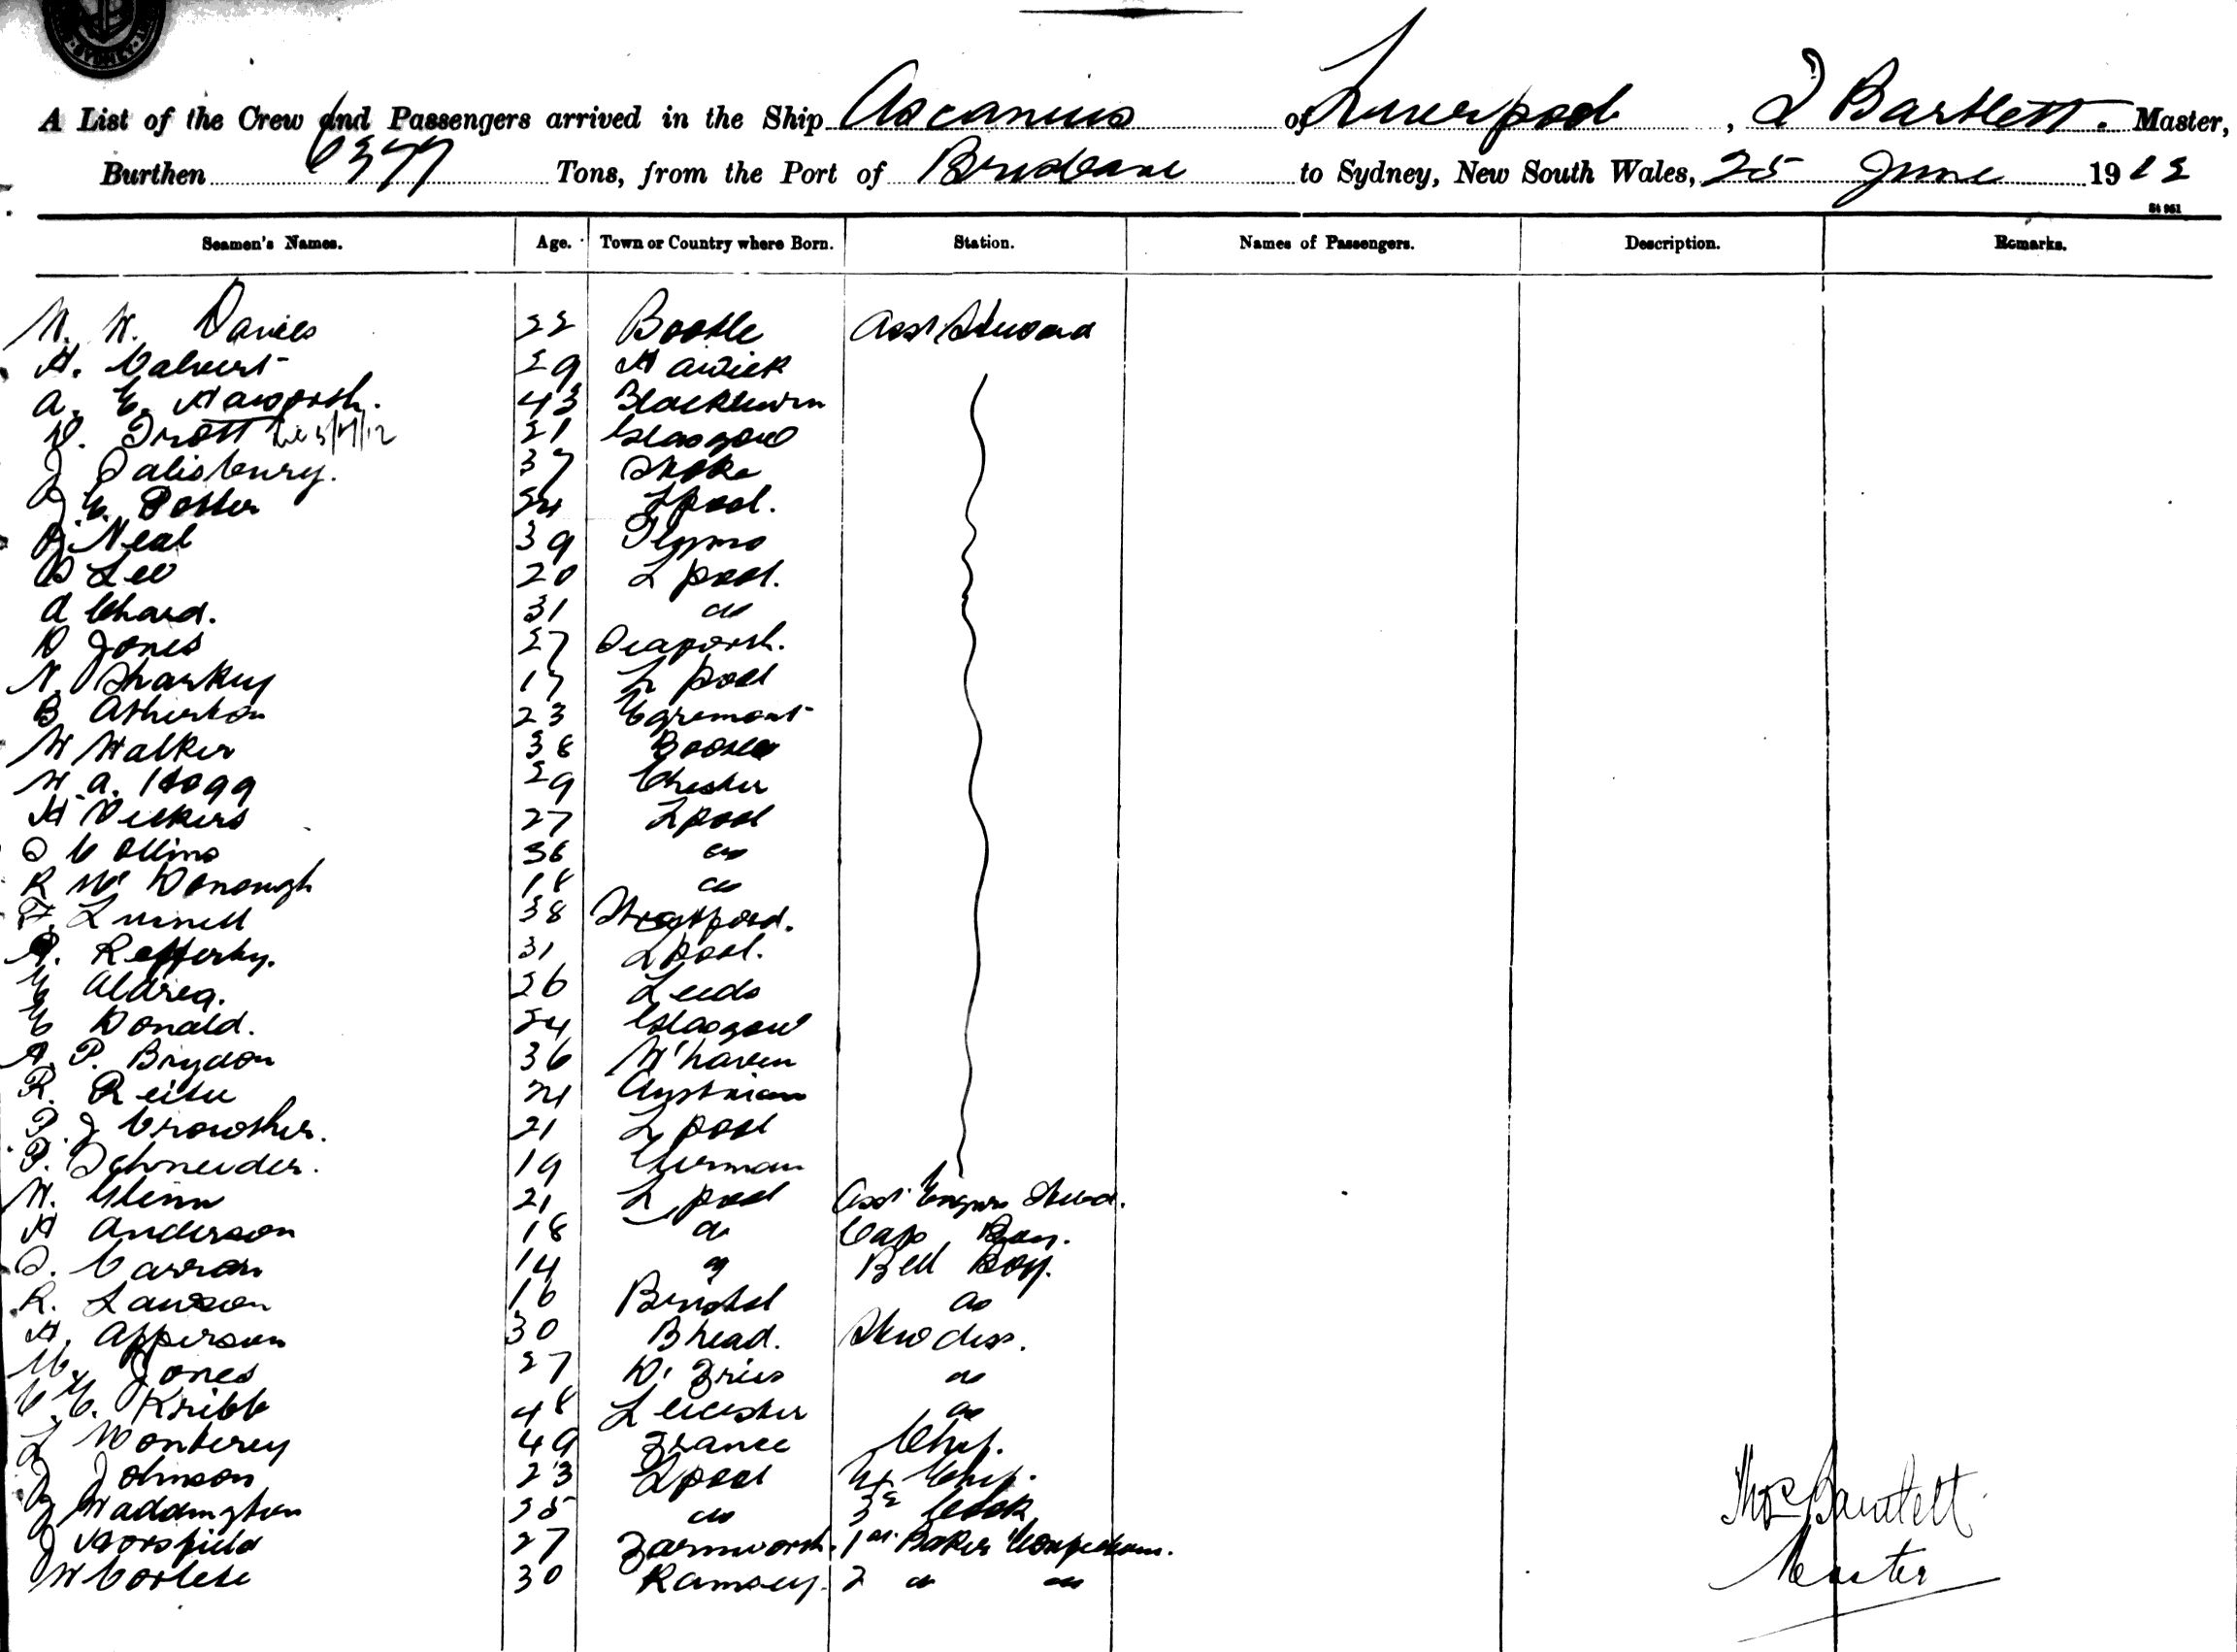 A List of the Crew and Passengers arrived in the Ship Ascanius of Liverpool, T Bartlett. Master,
Burthen 6377 Tons, from the Port of Brisbane to Sydney, New South Wales, 25 June 1912
St 951
Seamen's Names. Age. Town or Country where Born. Station. Names of Passengers. Description. Remarks.
W. W. Davies 22 Bootle Asst Steward
H. Calvert 29 Hawick
A. E. Haworth. 43 Blackburn
D. Trott 21 Glasgow
J Salisbury. 37 Stoke
J. E. Potter 24 Lpool.
J. Neal 39 Plymo
Lee 20 L pool.
A Chard. 31 do
D Jones 27 Seaforth.
N. Sharkey 17 L pool
B Atherton 23 Egremont
W Walker 38 Bootle
W. A. Hogg 29 Chester
H Vickers 27 Lpool
S Collins 36 do
R Mc Donough 18 do
F. Lunell 38 Stratford.
Rafferty. 31 Lpool.
E Aldred. 26 Leeds
E Donald. 24 Glasgow
A. P. Brydon 36 W'haven
R. 24 Austrian
P. J Crowther. 21 L pool
P. Schneider. 19 German
W. Glenn 21 L pool Asst Engrs Stewd.
H Anderson 18 do Capt Boy.
S. Carran 14 " Bell Boy.
R. Lawson 16 Bristol do
H. Apperson 30 B head. Stewdess.
M. Jones 27 D. Fries do
C. E. Kribb 48 Leicester do
L Monterey 49 France Chef.
J Johnson 23 Lpool Chef.
J Waddington 35 do 3d Cook
J Horsfield 27 Farnworth. 1st Baker Confect.
W Corlett 30 Ramsey. 2 do do
Thos Bartlett
Master